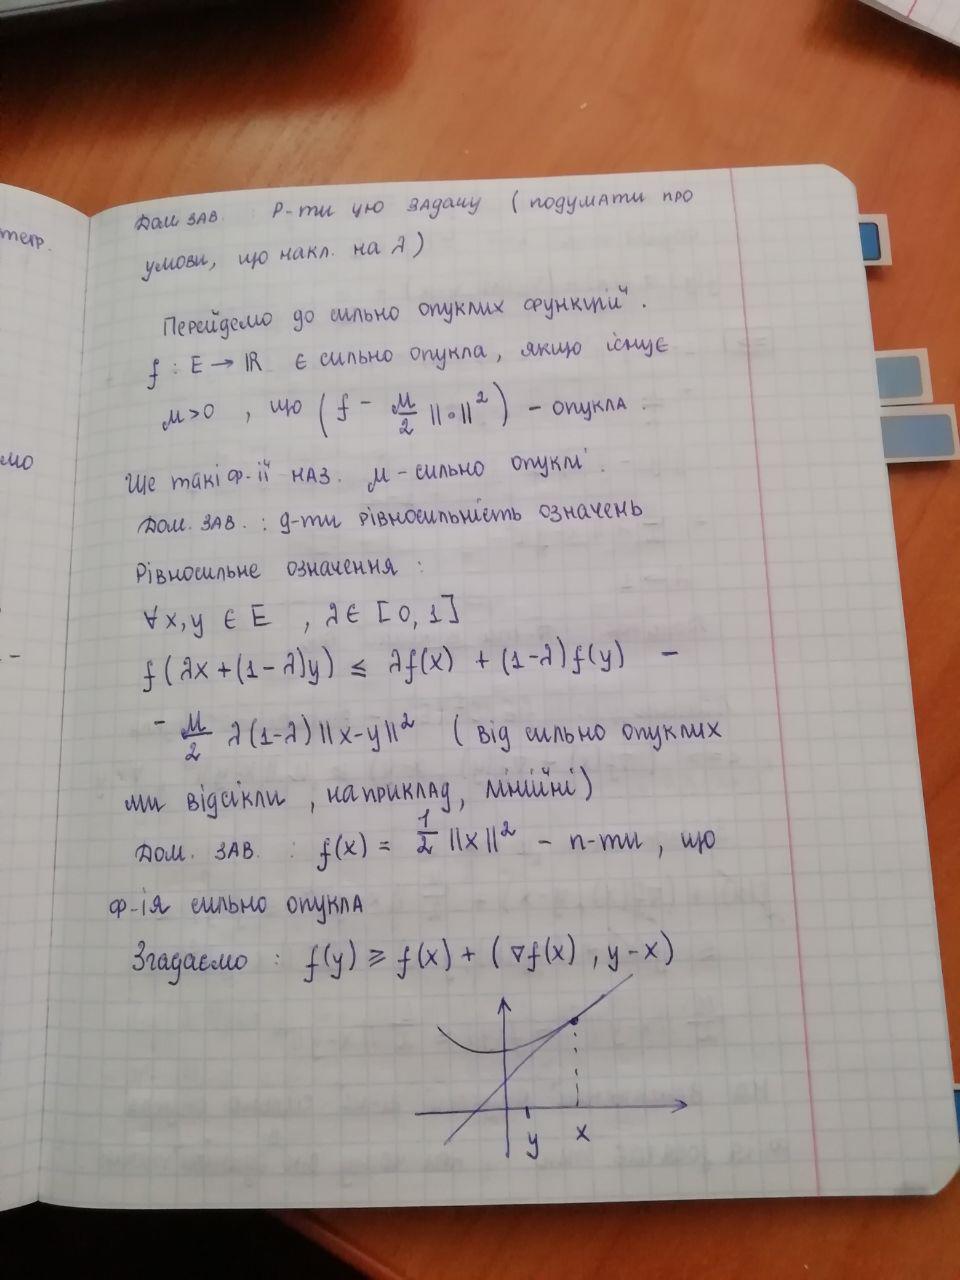 тегр.
мо
Дом. зав. : Р-ти цю задачу (подумати про
умови, що накл. на λ)
Перейдемо до сильно опуклих функцій.
f : E → ℝ є сильно опукла, якщо існує
μ > 0 , що (f - μ/2 ||∘||²) - опукла.
Ще такі ф-ії наз. μ-сильно опуклі.
Дом. зав. : д-ти рівносильність означень
Рівносильне означення :
∀x, y ∈ E , λ ∈ [0, 1]
f(λx + (1-λ)y) ≤ λf(x) + (1-λ)f(y) -
- μ/2 λ(1-λ)||x-y||² (від сильно опуклих
ми відсікли, наприклад, лінійні)
Дом. зав. : f(x) = 1/2 ||x||² - п-ти, що
ф-ія сильно опукла
Згадаємо : f(y) ≥ f(x) + (∇f(x), y-x)
y x